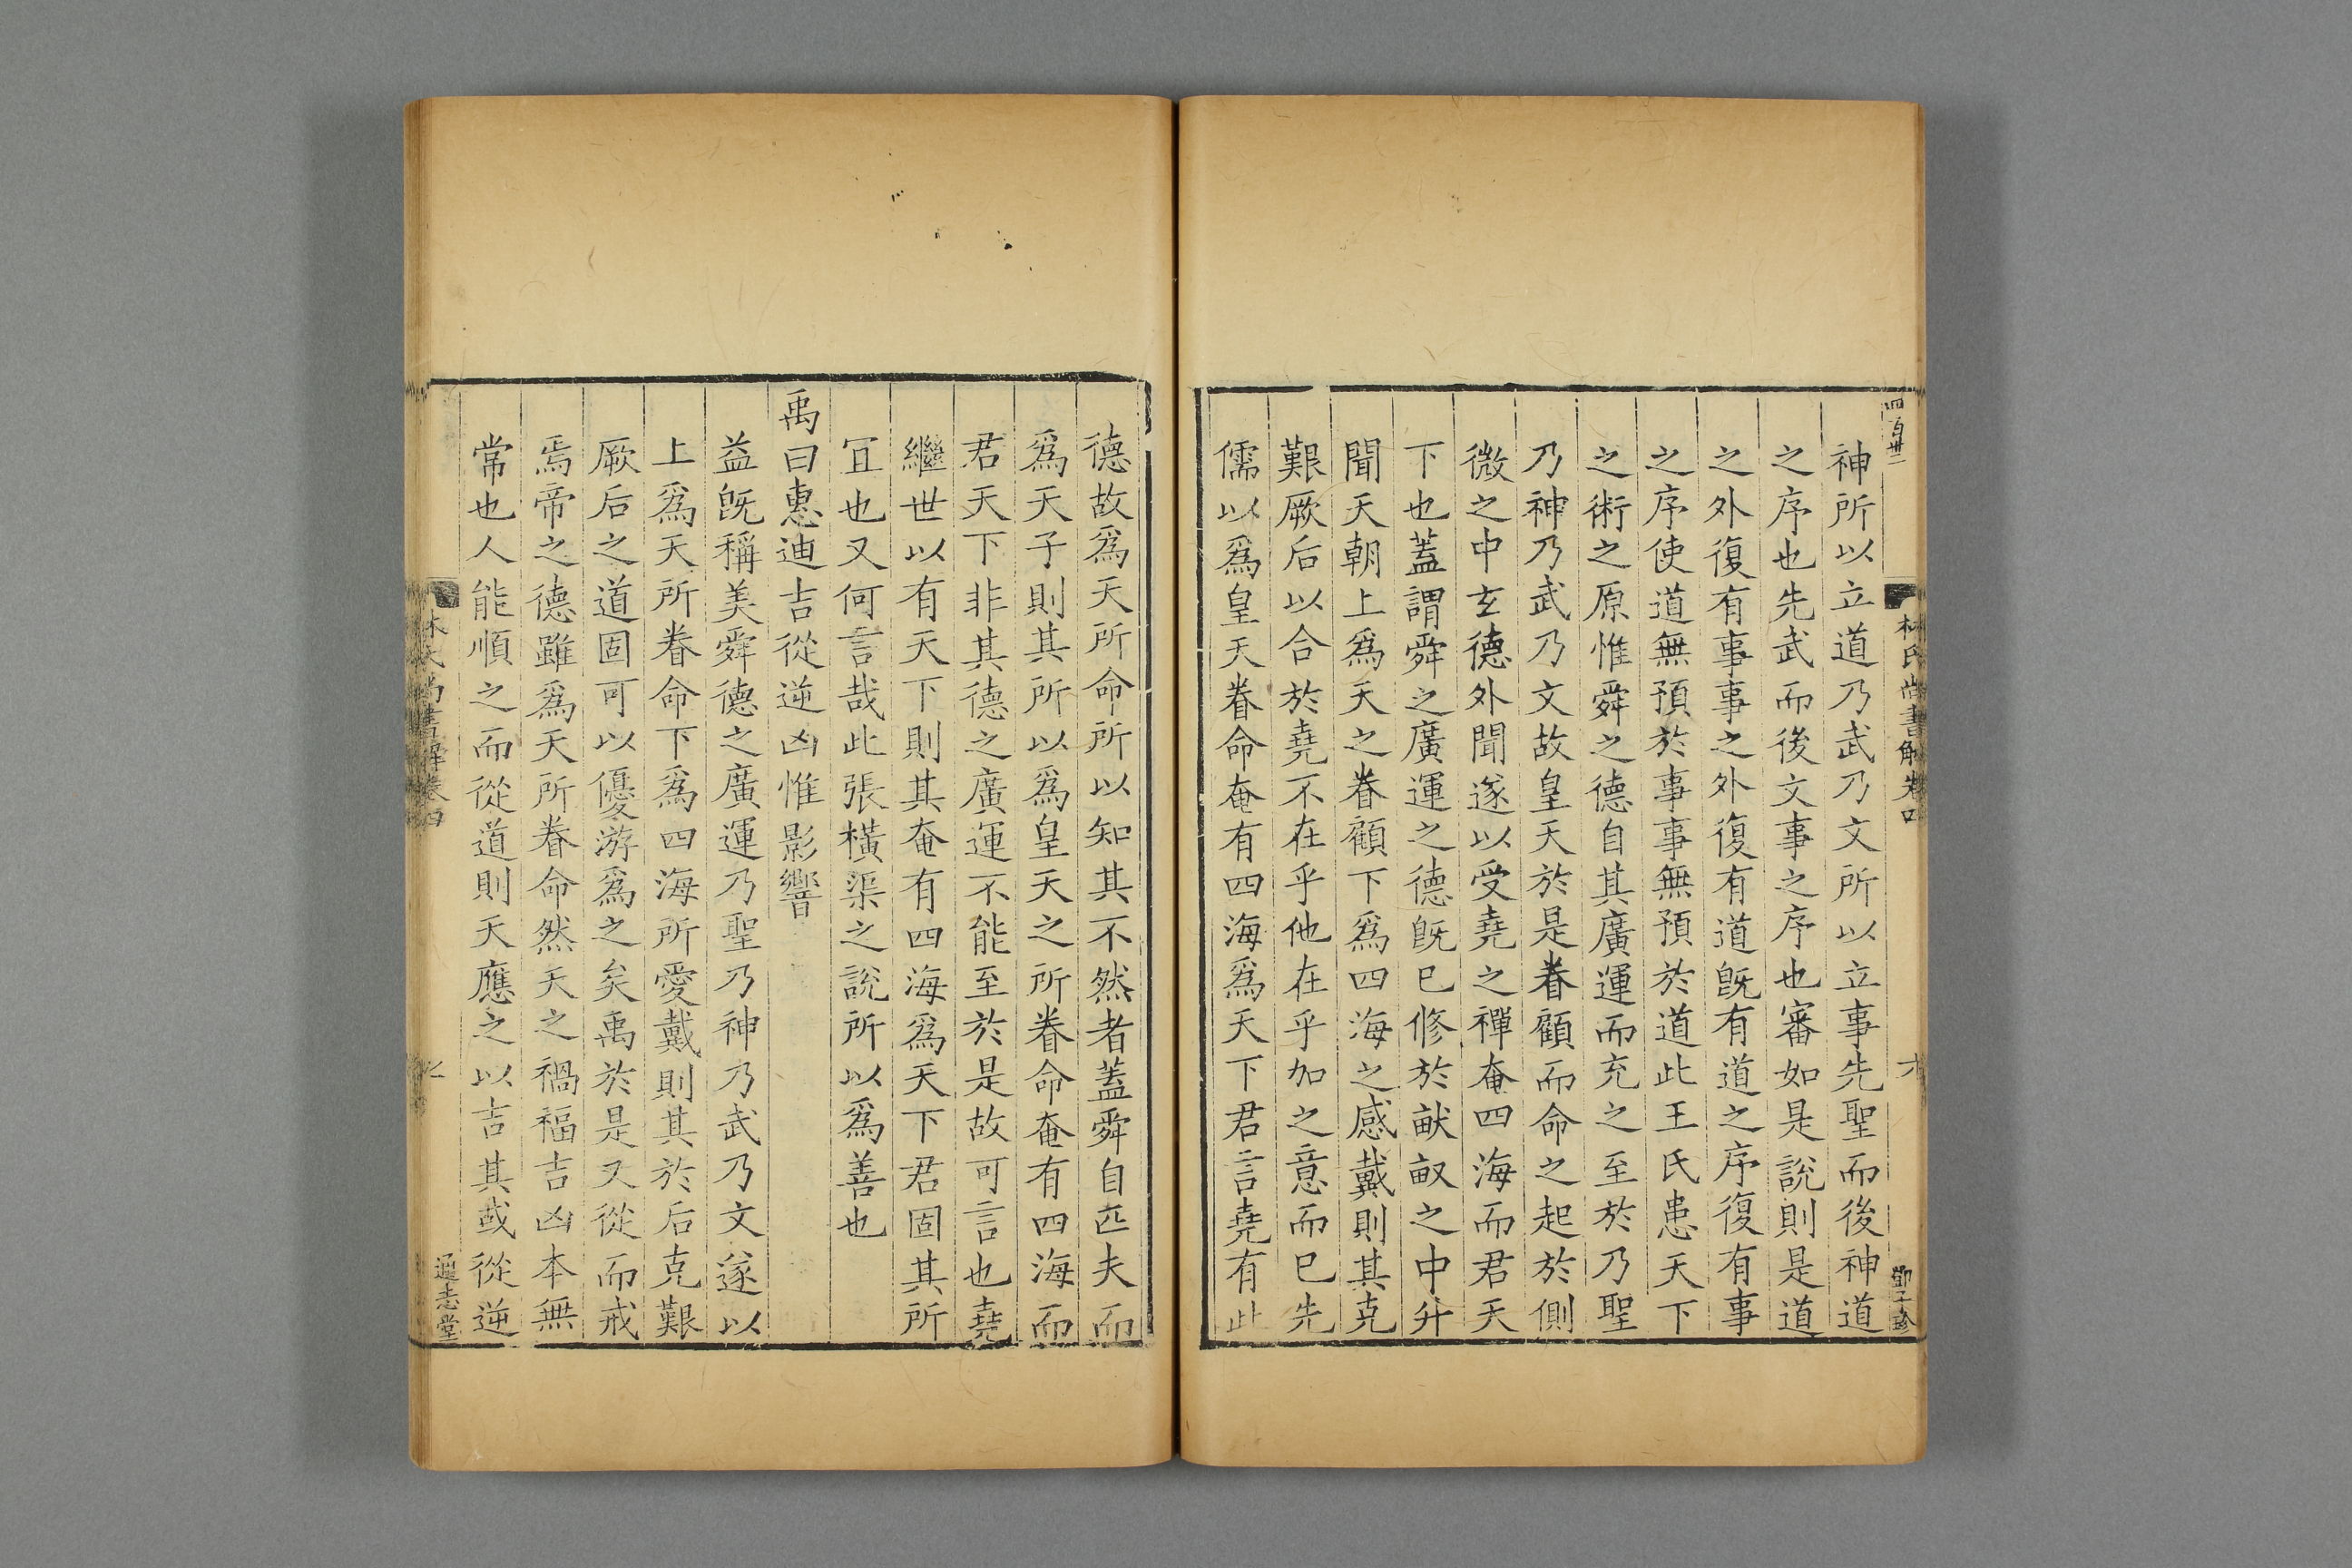 四百卅二
林氏尚書解卷四
六
神所以立道乃武乃文所以立事先聖而後神道
之序也先武而後文事之序也審如是說則是道
之外復有事事之外復有道旣有道之序復有事
之序使道無預於事事無預於道此王氏患天下
之術之原惟舜之德自其廣運而充之至於乃聖
乃神乃武乃文故皇天於是眷顧而命之起於側
微之中玄德外聞遂以受堯之禪奄四海而君天
下也蓋謂舜之廣運之德旣已修於畎畝之中升
聞天朝上爲天之眷顧下爲四海之感戴則其克
艱厥后以合於堯不在乎他在乎加之意而已先
儒以爲皇天眷命奄有四海爲天下君言堯有此
德故爲天所命所以知其不然者蓋舜自匹夫而
爲天子則其所以爲皇天之所眷命奄有四海而
君天下非其德之廣運不能至於是故可言也堯
繼世以有天下則其奄有四海爲天下君固其所
冝也又何言哉此張橫渠之說所以爲善也
禹曰惠迪吉從逆凶惟影響
益旣稱美舜德之廣運乃聖乃神乃武乃文遂以
上爲天所眷命下爲四海所愛戴則其於后克艱
厥后之道固可以優游爲之矣禹於是又從而戒
焉帝之德雖爲天所眷命然天之禍福吉凶本無
常也人能順之而從道則天應之以吉其或從逆
林氏尚書解卷四
七
通志堂